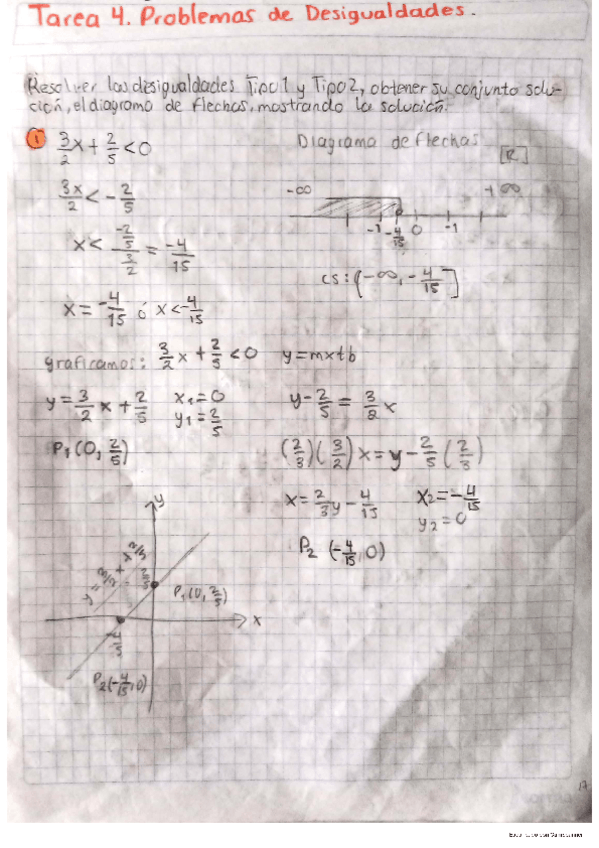 Tarea 4. Problemas de Desigualdades.
Resolver las desigualdades Tipo 1 y Tipo 2, obtener su conjunto solu-
ción, el diagrama de flechas, mostrando la solución.
1
3/2 x + 2/5 < 0
Diagrama de flechas
[R]
3x/2 < - 2/5
-∞ +∞
-1 -4/15 0 -1
x < (-2/5)/(3/2) = -4/15
cs: (-∞, -4/15]
x = -4/15 ó x < -4/15
graficamos: 3/2 x + 2/5 < 0 y = mx + b
y = 3/2 x + 2/5
x1 = 0
y1 = 2/5
y - 2/5 = 3/2 x
P1 (0, 2/5)
(2/3)(3/2) x = y - 2/5 (2/3)
x = 2/3 y - 4/15
x2 = -4/15
y2 = 0
P2 (-4/15, 0)
y
y = 3/2 x + 2/5
2/5
P1 (0, 2/5)
x
P2 (-4/15, 0)
17